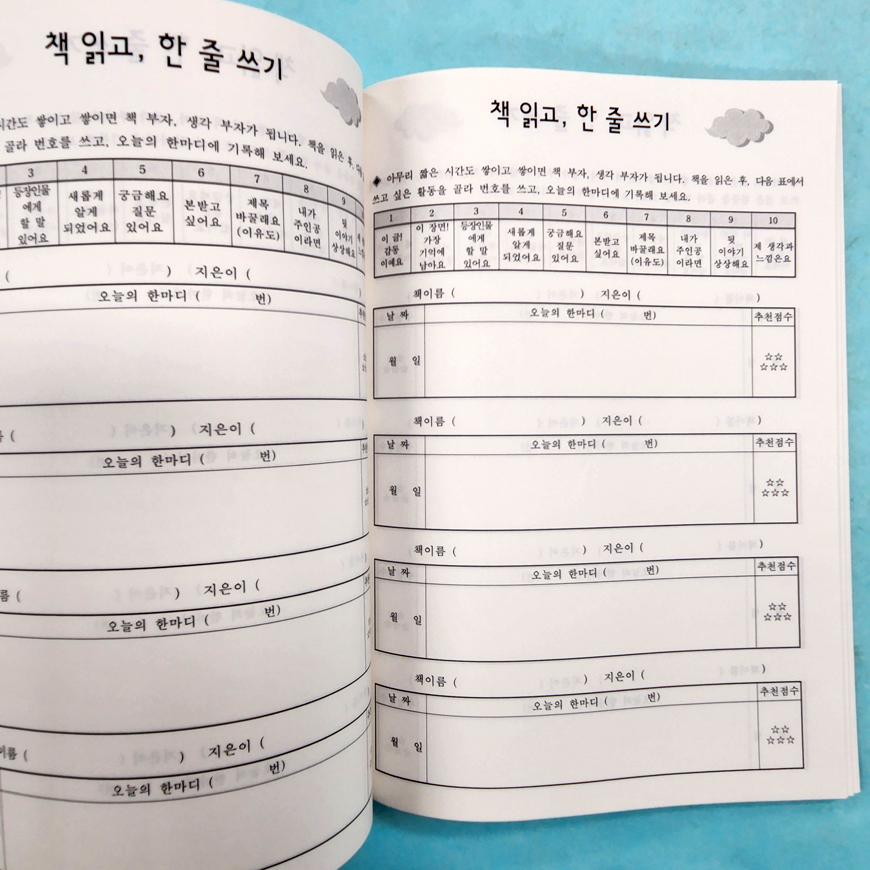 책 읽고, 한 줄 쓰기
시간도 쌓이고 쌓이면 책 부자, 생각 부자가 됩니다. 책을 읽은 후,
골라 번호를 쓰고, 오늘의 한마디에 기록해 보세요.
3 4 5 6 7 8 9
등장인물에게 할 말 있어요
새롭게 알게 되었어요
궁금해요 질문 있어요
본받고 싶어요
제목 바꿀래요 (이유도)
내가 주인공이라면
뒷이야기 상상해요
( ) 지은이 (
오늘의 한마디 ( 번)
( ) 지은이 (
오늘의 한마디 ( 번)
( ) 지은이 (
오늘의 한마디 ( 번)
( ) 지은이 (
오늘의 한마디 ( 번)
책 읽고, 한 줄 쓰기
◈ 아무리 짧은 시간도 쌓이고 쌓이면 책 부자, 생각 부자가 됩니다. 책을 읽은 후, 다음 표에서
쓰고 싶은 활동을 골라 번호를 쓰고, 오늘의 한마디에 기록해 보세요.
1 2 3 4 5 6 7 8 9 10
이 글! 감동이에요
이 장면! 가장 기억에 남아요
등장인물에게 할 말 있어요
새롭게 알게 되었어요
궁금해요 질문 있어요
본받고 싶어요
제목 바꿀래요 (이유도)
내가 주인공이라면
뒷이야기 상상해요
제 생각과 느낌은요
책이름 ( ) 지은이 ( )
날 짜 오늘의 한마디 ( 번) 추천점수
월 일 ☆☆
☆☆☆
책이름 ( ) 지은이 ( )
날 짜 오늘의 한마디 ( 번) 추천점수
월 일 ☆☆
☆☆☆
책이름 ( ) 지은이 ( )
날 짜 오늘의 한마디 ( 번) 추천점수
월 일 ☆☆
☆☆☆
책이름 ( ) 지은이 ( )
날 짜 오늘의 한마디 ( 번) 추천점수
월 일 ☆☆
☆☆☆